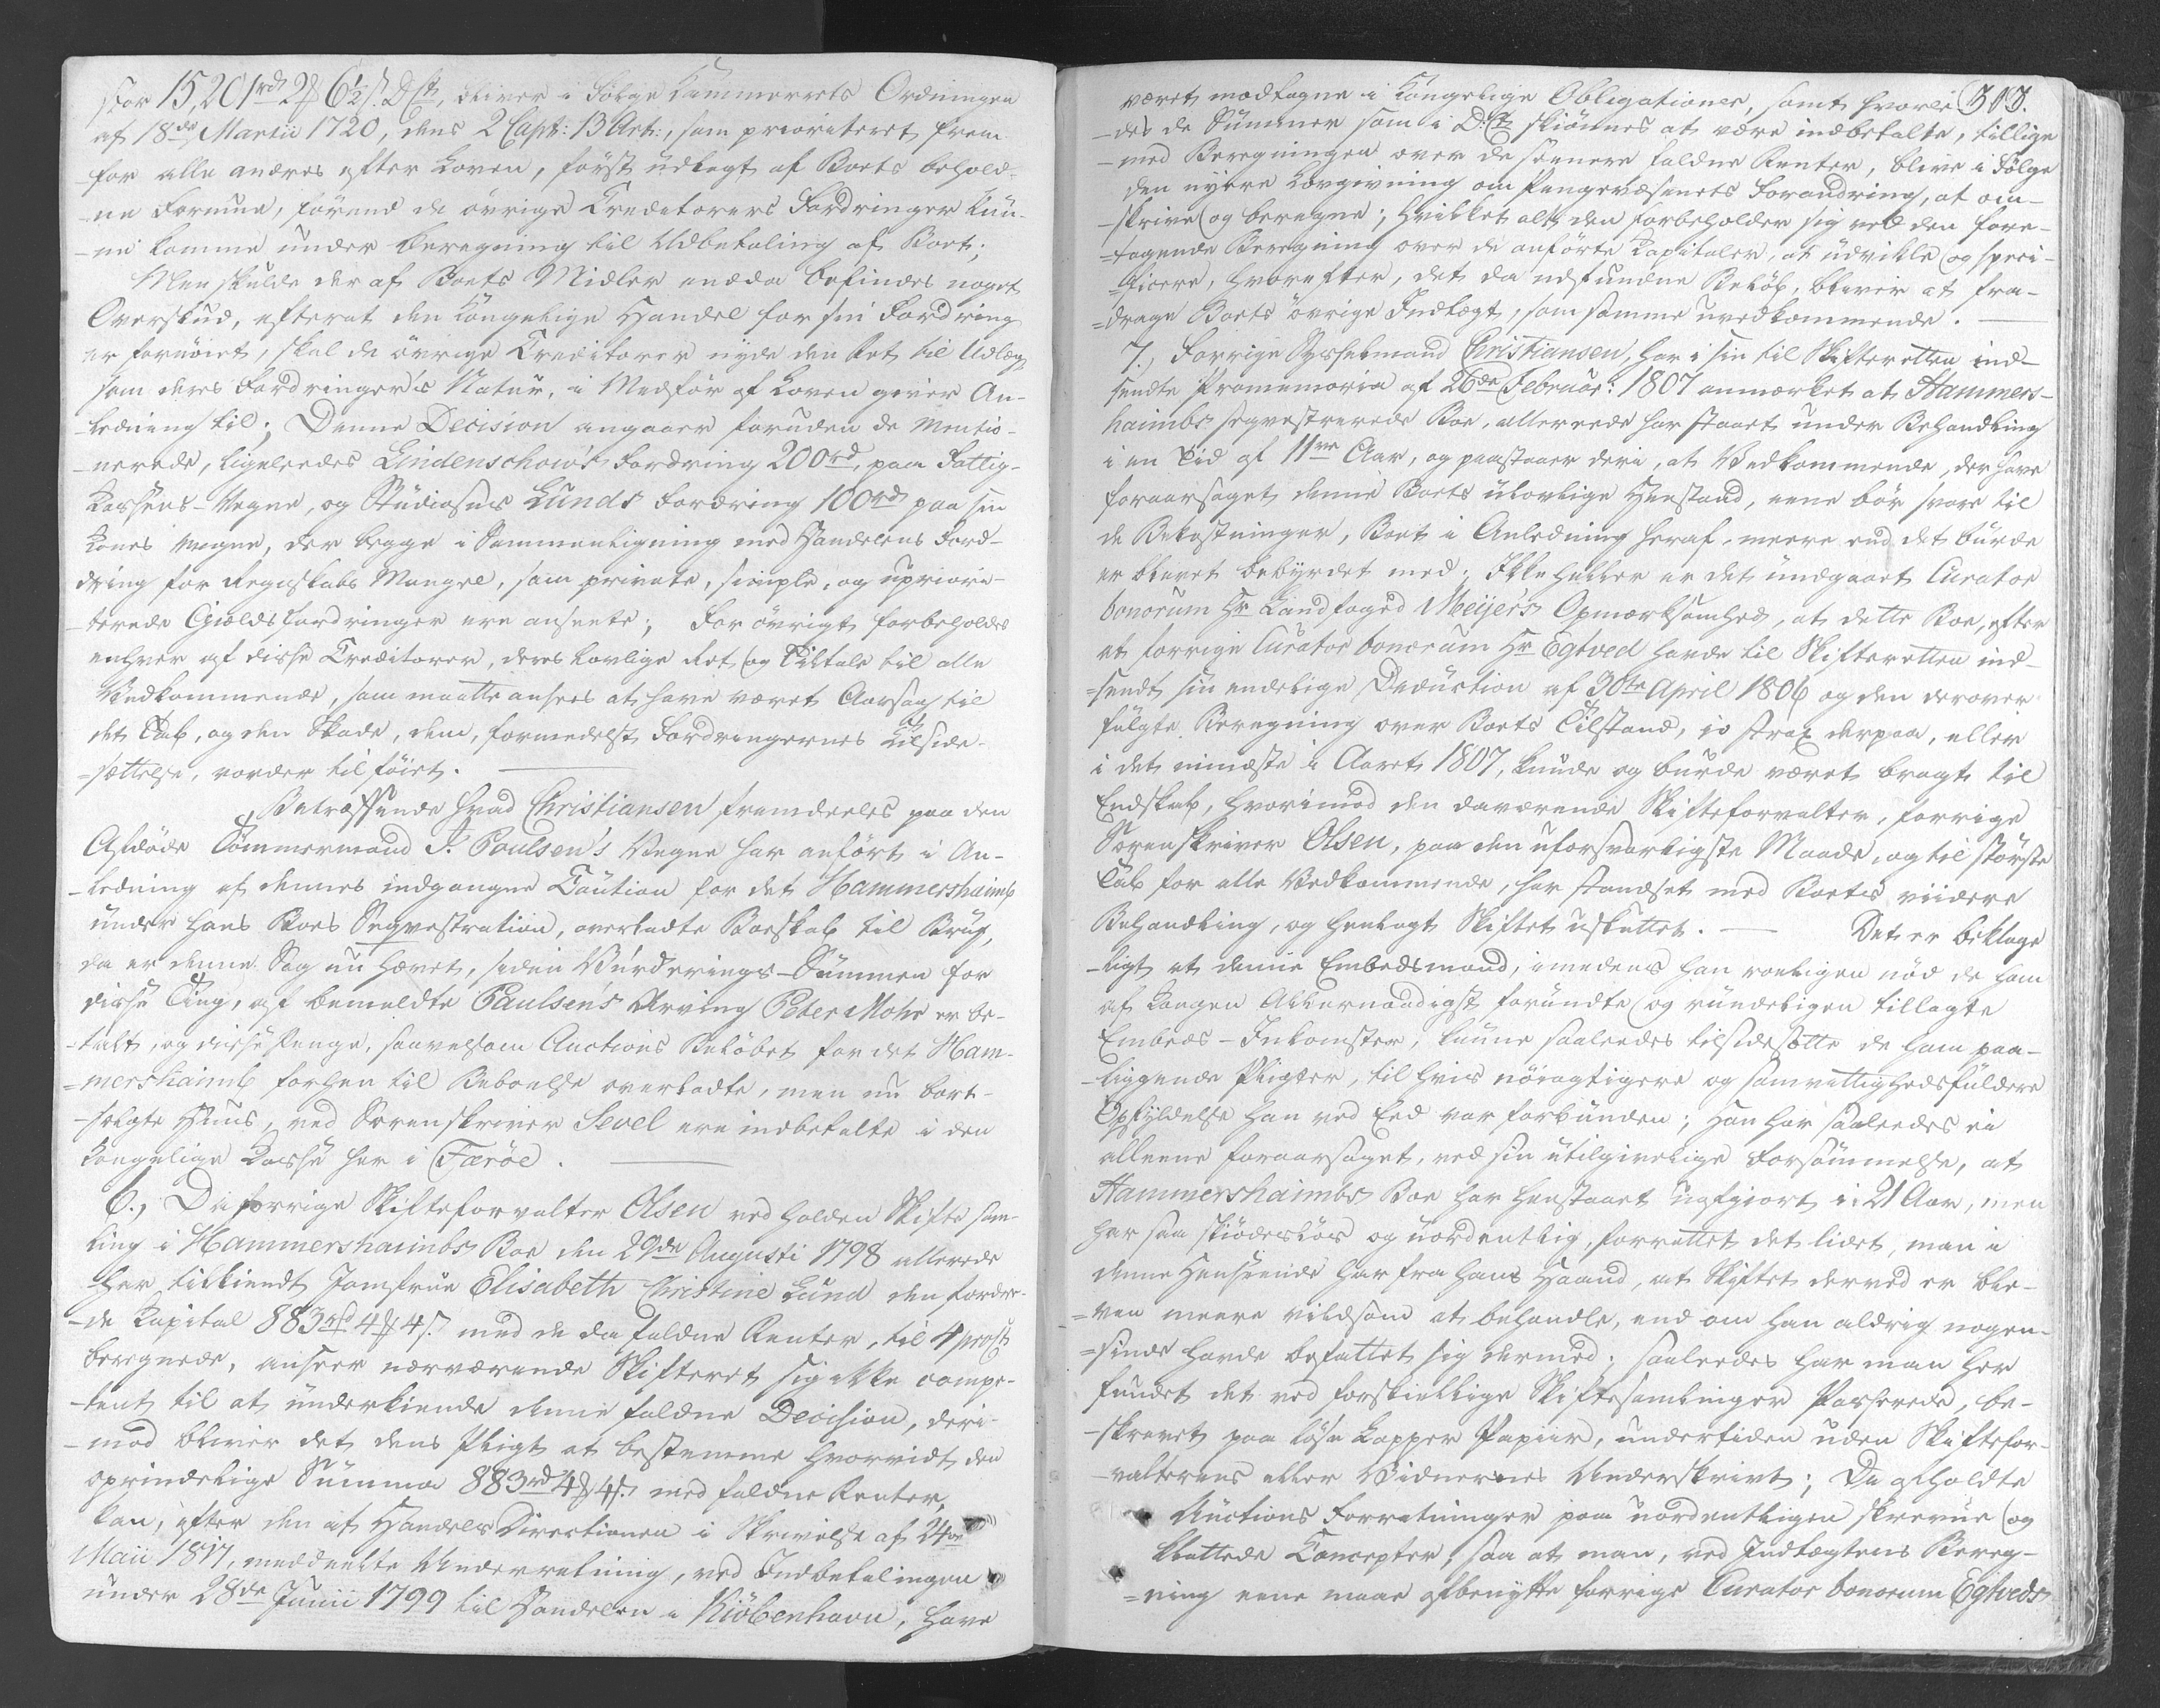 for 15,201rd 2 ₰ 6½ s. D. Ct, bliver i Følge Kammerrets Ordningen
af 18de Martii 1720, dens 2 Capt: 13 Art:, som prioriteret frem
for alle andres efter Loven, først udlagt af Boets behold-
ne Formue, førend de øvrige Creditorers Fordringer kun-
ne komme under beregning til Udbetaling af Boet;
Men skulde der af Boets Midler endda befindes noget
Overskud, efterat den Kongelige Handel for sin Fordring
er fornøiet, skal de øvrige Creditorer nyde den Ret til Udlæg,
som deres Fordringer's Natur, i Medfør af Loven giver An-
ledning til; Denne Decision angaaer foruden de mentio-
nerede, ligeledes Lindenschow's Fordring 200rd, paa Fattig-
Kassens-Vegne, og Studiosus Lunds Fordring 100rd paa sin
Kones Vegne, der begge i Sammenligning med Handelens Ford-
dring for Regnskabs Mangel, som private, simple, og upriori-
terede Gjelds Fordringer ere ansete; For øvrigt forbeholdes
enhver af disse Creditorer, deres lovlige Ret og Tiltale til alle
Vedkommende, som maatte ansees at have været Aarsag til
det Tab, og den Skade, dem, formedelst Fordringernes Tilside-
=sættelse, vorder tilføiet.
Betræffende hvad Christiansen fremdeeles paa den
Afdøde Tømmermand J. Poulsen's Vegne har anført i An-
-ledning af dennes indgangne Caution for det Hammershaimb
under hans Boes Seqvestration, overladte Boeskab til Brug,
da er denne Sag nu hævet, siden Vurderings-Summen for
disse Ting, af bemeldte Paulsen's Arving Peter Mohr er be-
-talt, og disse Penge, saavelsom Auctions Beløbet for det Ham-
=mershaimb forhen til Beboelse overladte, men nu bort-
-solgte Huus, ved Sorenskriver Sevel ere indbetalte i den
Kongelige Kasse her i Færøe.
6., Da forrige Skifteforvalter Olsen ved holden Skifte sam-
ling i Hammershaimbs Boe den 29de Augusti 1798 allerede
har tilkiendt Jomfrue Elisabeth Christine Lund den fordre-
-de Kapital 883rd 4 ₰ 4 s. med de da faldne Renter, til 4 proCt
beregnede, anseer nærværende Skifteret sig ikke compe-
-tent til at underkiende denne faldne Decision, deri-
-mod bliver det dens Pligt at bestemme hvorvidt den
oprindelige Summa 883rd 4 ₰ 4 s. med faldne Renter,
kan, efter den af Handels Directionen i Skrivelse af 24de
Maii 1817, meddeelte Underretning, ved Indbetalingen
under 28de Junii 1799 til Handelen i Kiöbenhavn, have
303.
været modtagne i Kongelige Obligationer, samt hvorle-
-des de Summer som i D. Ct skiønnes at være indbetalte, tillige
-med Beregningen over de senere faldne Renter, blive i Følge
den nyere Lovgivning om Pengevæsenets Forandring, at om-
-skrive og beregne; hvilket alt den forbeholder sig ved den fore-
=tagende Beregning over de anførte Kapitaler, at udvikle og speci-
=ficere, hvorefter, det da udfundne Beløb, bliver at fra-
=drage Boets øvrige Indtægt, som samme uvedkommende.
7., Forrige Sysselmand Christiansen, har i sin til Skifteretten ind-
sendte Promemoria af 26de Februar: 1807 anmærket at Hammers-
haimbs seqvestrerede Boe, allerede har staaet under Behandling
i en Tid af 11ve Aar, og paastaaer deri, at Vedkommende, der have
foraarsaget denne Boets ulovlige Henstand, ene bør svare til
de Bekostninger, Boet i Anledning heraf, meere end det burde
er blevet bebyrdet med; Ikke heller er det undgaaet Curator
bonorum Hr Landfoged Meijer's Opmærksomhed, at dette Boe, efter
at forrige Curator bonorum Hr Egtved havde til Skifteretten ind-
=sendt sin endelige Deduction af 30te April 1806 og den derover
fulgte Beregning over Boets Tilstand, jo strax derpaa, eller
i det mindste i Aaret 1807, kunde og burde været bragt til
Endskab, hvorimod den daværende Skifteforvalter, forrige
Sorenskriver Olsen, paa den uforsvarligste Maade, og til største
Tab for alle Vedkommende, har standset med Boets viidere
Behandling, og henlagt Skiftet usluttet. Det er beklage
-ligt at denne Embedsmand, imedens han roeligen nød de ham
af Kongen Allernaadigst forundte og rundeligen tillagte
Embeds-Inkomster, kunne saaledes tilsidesætte de ham paa-
-liggende Pligter, til hvis nøiagtigere og samvittighedsfuldere
Opfyldelse han ved Eed var forbunden; Han har saaledes ei
alleene foraarsaget, ved sin utilgivelige Forsømmelse, at
Hammershaimbs Boe har henstaaet uafgiort i 21 Aar, men
har saa skiødesløs og uordentlig, forrettet det lidet, man i
denne Henseende har fra hans Haand, at Skiftet derved er ble-
=ven meere vildsom at behandle, end om han aldrig nogen-
=sinde havde befattet sig dermed; saaledes har man her
fundet det ved forskiellige Skiftesamlinger Passerede, be-
-skrevet paa løse Lapper Papiir, undertiden uden Skiftefor-
-valterens eller Vidnernes Underskrivt; De afholdte
Auctions Forretninger paa uordentligen skrevne og
klattede Concepter, saa at man, ved Indtægtens Bereg-
=ning ene maae afbenytte forrige Curator bonorum Egtveds